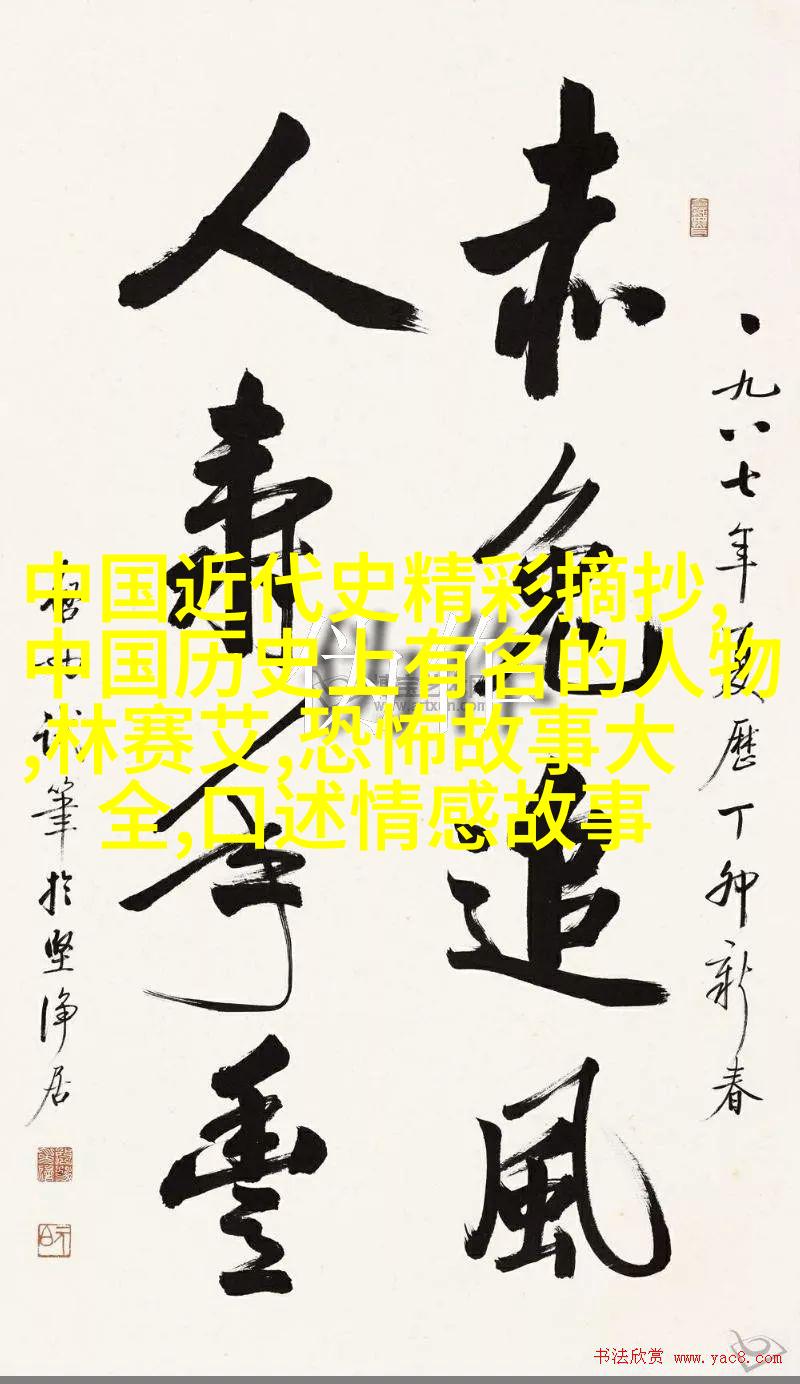 一九八七年夏歷丁卯新春
赤兔追風
人壽年豐
啓功試筆於堅淨居
中国近代史精彩摘抄,
中国历史上有名的人物
,林赛艾,恐怖故事大
全,口述情感故事
书法欣赏 www.yac8.com